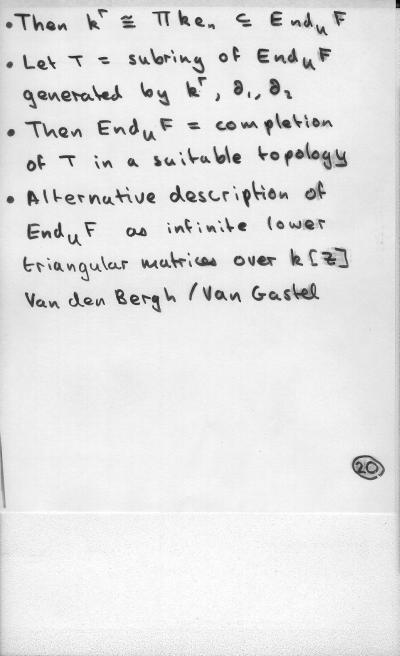 • Then k^Γ ≅ Π ke_n ⊆ End_U F
• Let T = subring of End_U F
generated by k^Γ, ∂₁, ∂₂
• Then End_U F = completion
of T in a suitable topology
• Alternative description of
End_U F as infinite lower
triangular matrices over k[z]
Van den Bergh / Van Gastel
20